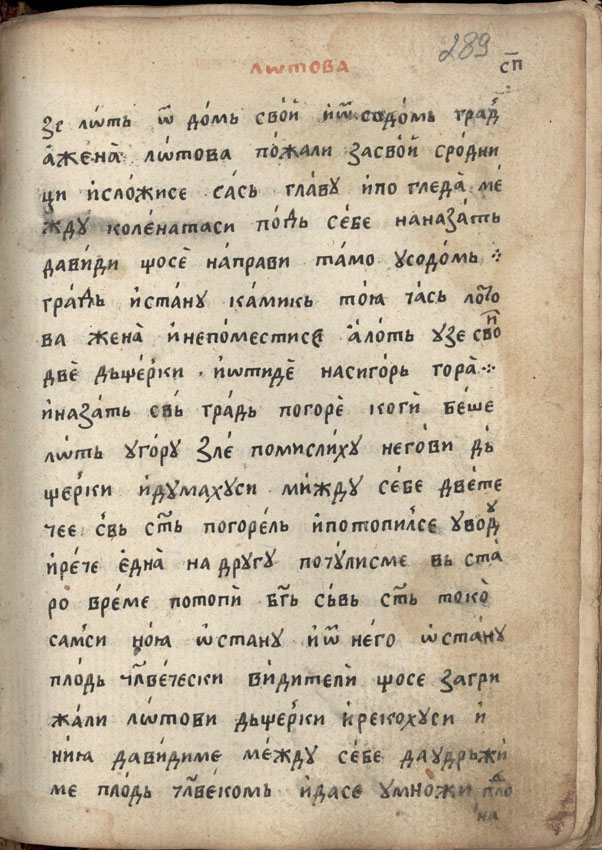 лѡтова
289
с҃п
зє лѡть ѿ до́мь сво́й и҆ѿ содо́мь гра́д
а҆жена̀ лѡ́това по́жали засво́й сро́дни
ци и҆сло́жисе са́сь гла́ву и҆по гледа̀ ме́
жду коле́натаси по́дь се́бе наназа́ть
дави́ди що́се на́прави та́мо усодо́мь ⁘
гра́дь и҆ста́ну ка́микь то́ю ча́сь ло́то
ва жена̀ и҆непо́местисе а҆ло́ть у҆зе свои
две̑ дьще́рки · и҆ѿтиде̑ насиго́рь гора̀ ⁘
и҆наза́ть свь́ гра́дь погоре̑ коги̑ бе́ше
лѡ́ть уго́ру зле́ поми́слиху него́ви дь́
ще́рки и҆ду́махуси ме́жду се́бе две́те
че́е свь́ ст҃ь погоре́ль и҆потопи́лсе уво́ду
и҆ре́че е҆дна̀ на дру́гу почу́лисме вь ста́
ро вре́ме потопи̑ бг҃ь сь́вь ст҃ь токо̀
са́мси но́ю ѡ҆ста́ну и҆ѿ не́го ѡ҆ста́ну
пло́дь чл҃ве́чески ви́дители̑ що́се загри
жа́ли лѡ́тови дьще́рки и҆ реко́хуси и҆
ни́ю дави́диме ме́жду се́бе даудрьжи́
ме пло́дь чл҃ве́комь и҆да́се умно́жи пло
на